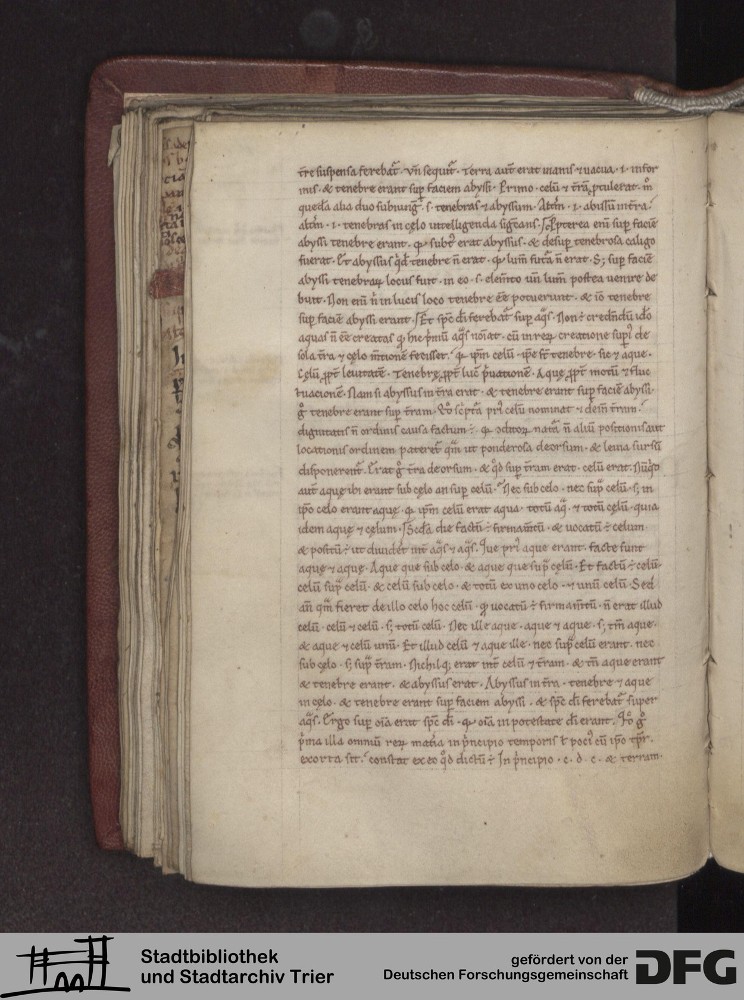 t̄re suspensa ferebat᷑. Vñ sequit᷑. Terra aut̄ erat inanis ⁊ uacua .i. infor
mis. & tenebre erant sup̱ faciem abyssi. Primo celū & t̄rā
que da alia duo subiung̃ .s. tenebras ⁊ abyssum. .i. abissū in t̄ra.
.i. tenebras in cęlo intelligenda sup̱ faciē
abyssi tenebre erant. erat abyssus. & desup̱ tenebrosa caligo
fuerat. Et abyssus tenebre n̄ erat. lum̄ n̄ erat. S; sup̱ faciē
abyssi locus fuit. in eo .s. uñ lum̄ postea uenire de
buit. Non enī n̄ in lucis loco tenebre eē potuerunt. & iō tenebre
sup̱ faciē abyssi erant. Et sp̄c dī ferebat᷑ sup̱ aq̄s.
aquas n̄ eē creatas aq̄s noīat. cū in rerū creatione
sola t̄ra ⁊ cęlo m̄tionē fecisset. ip̄m celū. tenebre. sic ⁊ aque.
Cęlū leuitatē. Tenebrę lucis p̱uationē. Aquę motū ⁊ fluc
tuacionē. Nam si abyssus in t̄ra erat. & tenebre erant sup̱ faciē abyssi.
g̊ tenebre erant sup̱ t̄ram. celū nominat ⁊ dein t̄ram.
dignitatis n̄ ordinis causa factum ÷. n̄ aliū positionis aut
locationis ordinem pateret᷑ qm̄ ut ponderosa deorsum. & leuia sursū
disponerent᷑. Erat g̊ t̄ra deorsum. & qd̄ sup̱ t̄ram erat. celū erat.
aut̄ aquę ibi erant sub cęlo an sup̱ celū. Nec sub celo. nec sup̱ celū. s; in
ip̄o celo erant aquę. ip̄m celū erat aqua. totū aq̄. ⁊ totū cęlū. quia
idem aquę ⁊ cęlum. die factū ÷ firmam̄tū. & uocatū ÷ celum.
& positū ÷ ut diuidēt int̄ aq̄s ⁊ aq̄s. Que aque erant. facte sunt
aquę ⁊ aquę. Aque que sub celo. & aque que sup̱ cęlū. Et factū ÷ celū.
celū sup̱ celū. & celū sub celo. & totū ex uno celo. ⁊ unū celū. Sed
añ qm̄ fieret de illo celo hoc celū. uocatū ÷ firmam̄tū. n̄ erat illud
celū. celū ⁊ celū. s; totū celū. Nec ille aque. aque ⁊ aque. s; tm̄ aque.
& aque ⁊ celū unū. Et illud celū ⁊ aque ille. nec sup̱ celū erant. nec
sub cęlo. s; sup̱ t̄ram. Nichilq; erat int̄ celū ⁊ t̄ram. & tm̄ aque erant
& tenebre erant. & abyssus erat. Abyssus in t̄ra. tenebre ⁊ aque
in cęlo. & tenebre erant sup̱ faciem abyssi. & sp̄c dī ferebat᷑ super
aq̄s. Ergo sup̱ oīa erat sp̄c dī. oīa in potestate dī erant.
p̱ma illa omniū rerū mat̄ia in p̱ncipio temporis cū ip̄o tp̄r.
exorta sit. constat ex eo qd̄ dictū ÷ In p̱ncipio .c. d. c. & terram.
Stadtbibliothek
und Stadtarchiv Trier
gefördert von der
Deutschen Forschungsgemeinschaft
DFG